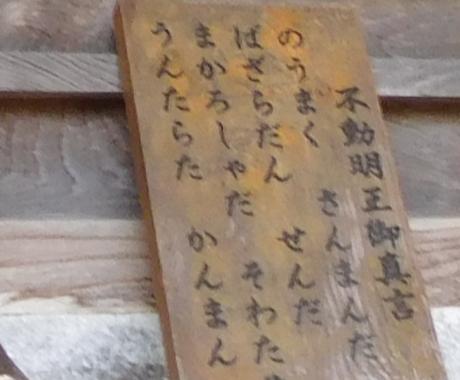 不動明王御真言
のうまく さんまんだ
ばざらだん せんだ
まかろしゃだ そわた
うんたらた かんまん